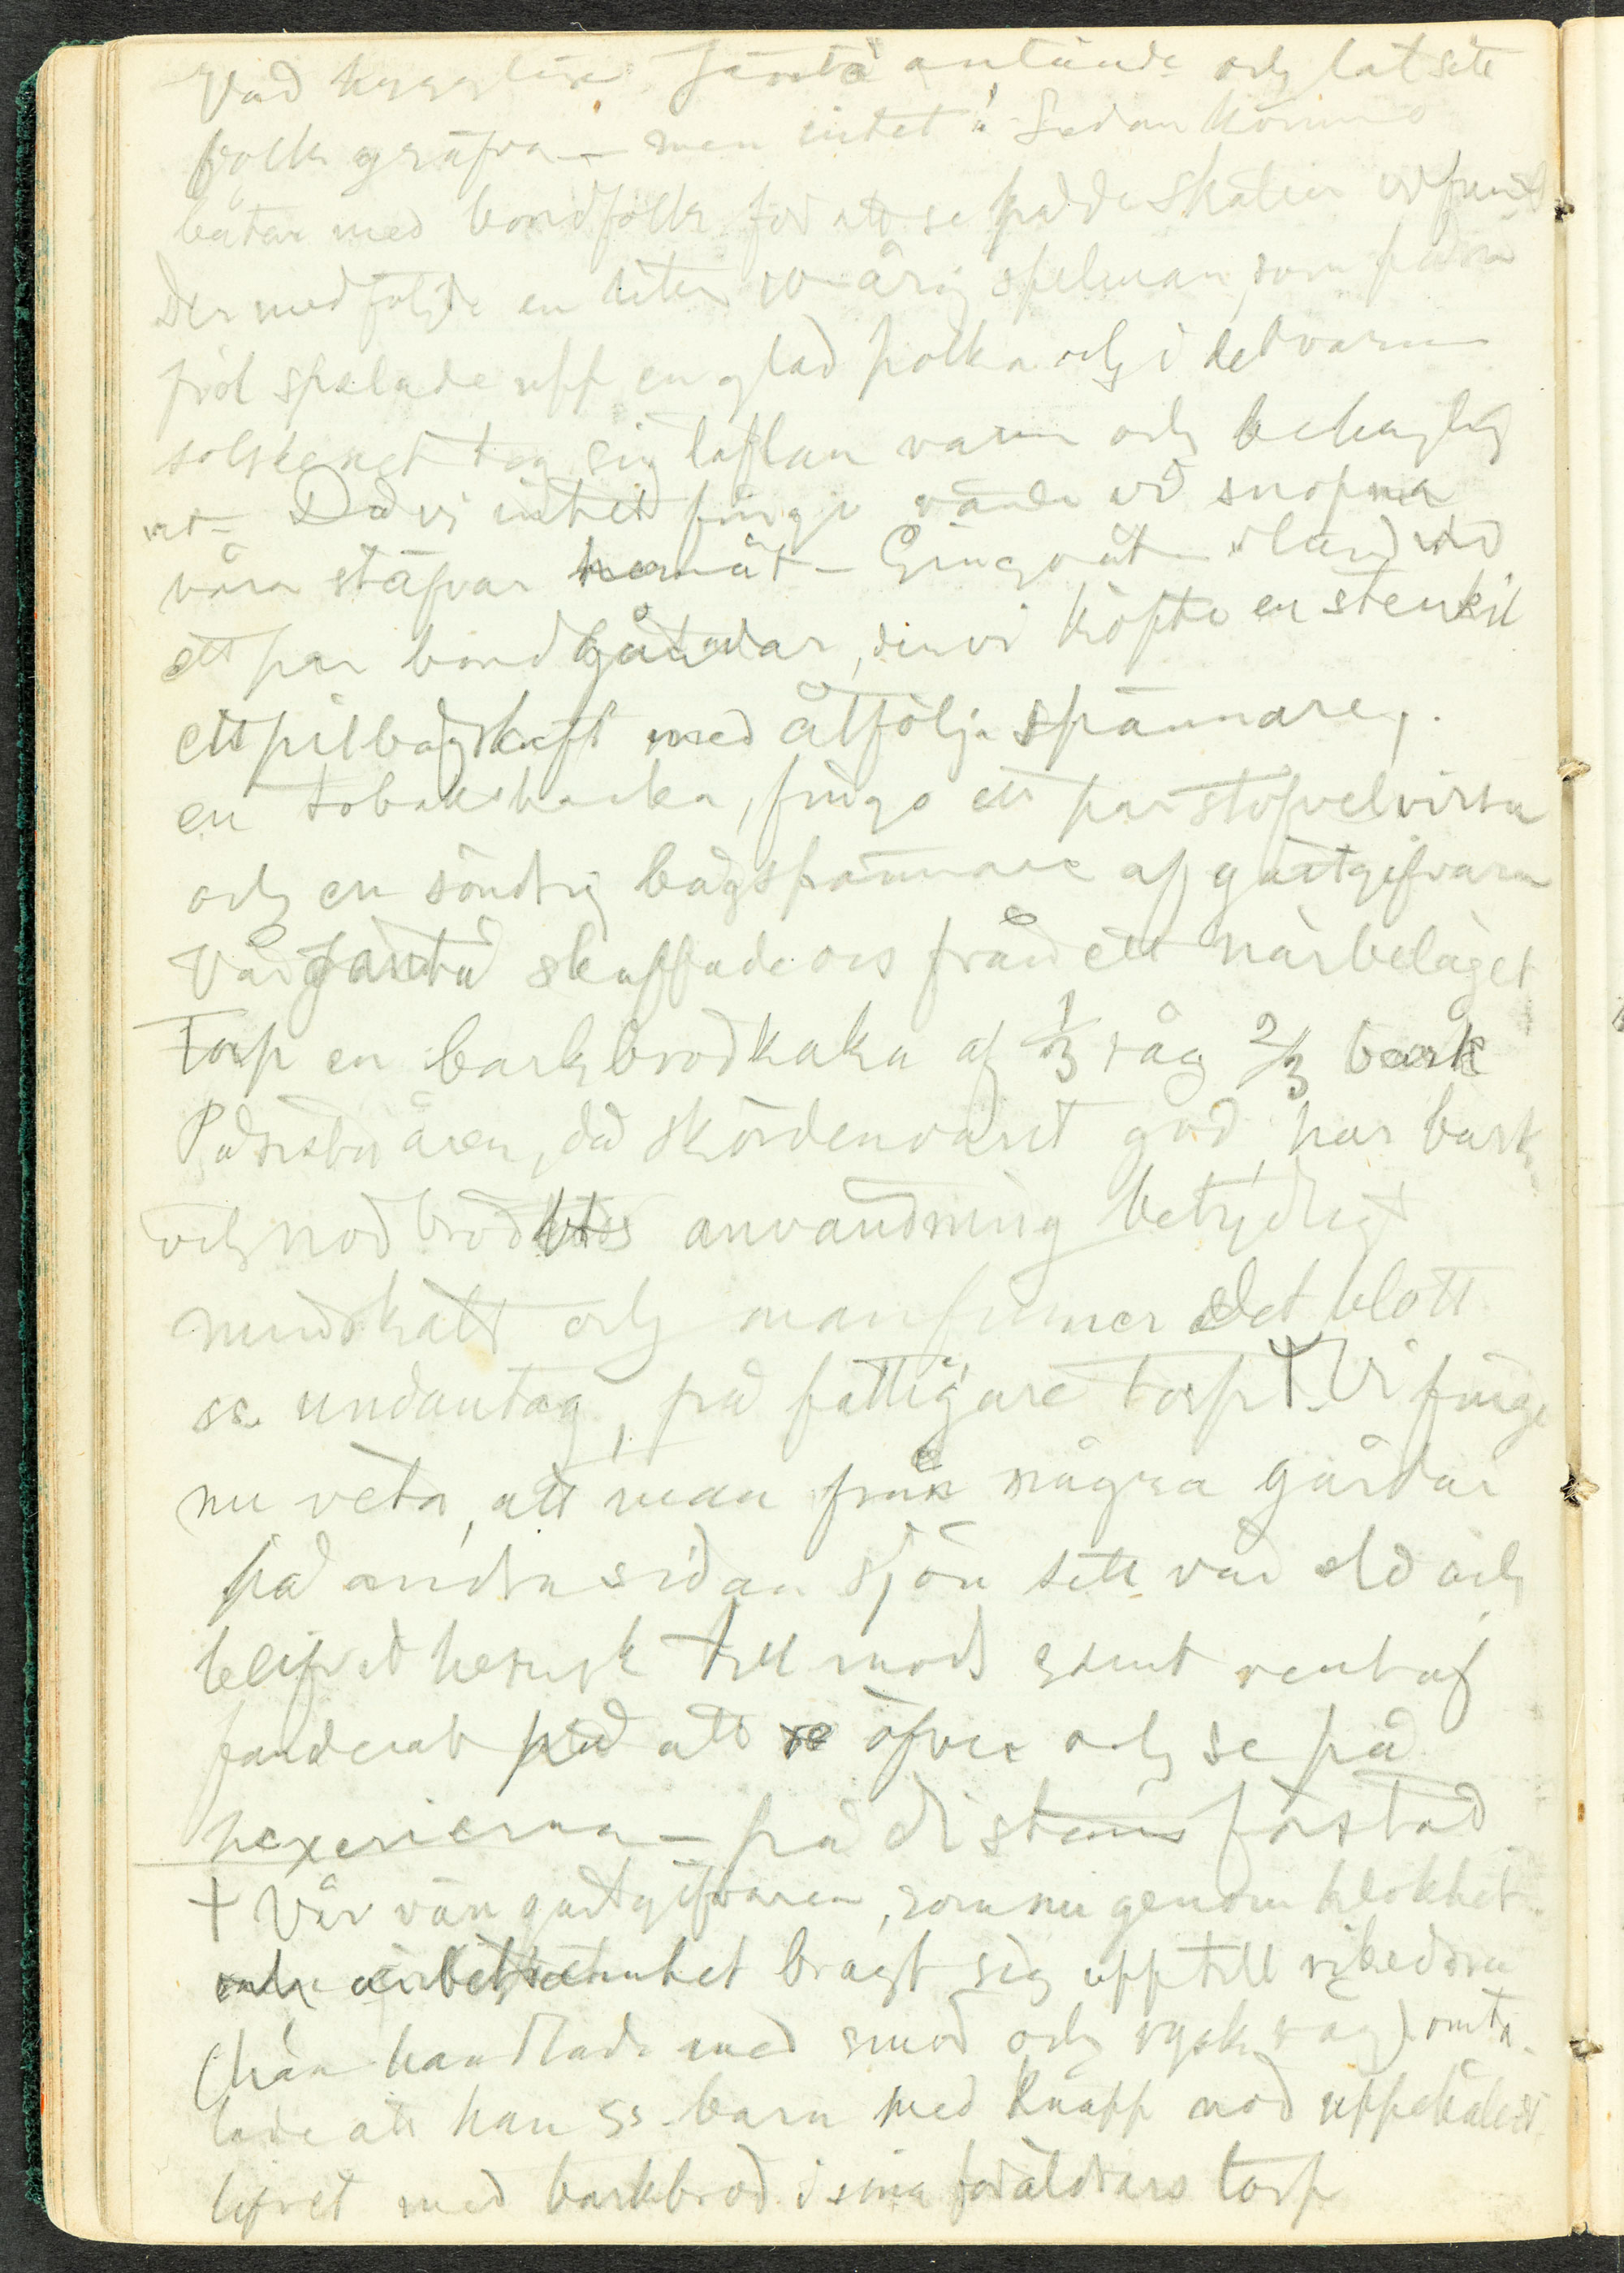 Vad antände och lät sitt
folk gräfva – men intet " Sedan kommo
båtar med bondfolk för att se på de
Der medföljde en liten 10 årig spelman, som på sin
fiol spelade upp en glad polka och i det varma
solskenet tog sig taflan varm och behaglig
ut – Då vi intet fingo vände vi
våra stäfvar hemåt – Gingo åt land vid
ett par bondgårdar, der vi köpte en stenkil
ett pilbågskaft med åtfölj. spännare,
en tobakshacka, fingo ett par
och en söndrig bågspännare af gästgifvarn
Vår skaffade oss från ett närbeläget
Torp en barkbrödkaka af 1/3 råg 2/3 bark
På sista åren, då skörden varit god, har bark
och nödbrödets användning betydligt
minskats och man finner det blott
ss. undantag, på fattigare torp † Vi fingo
nu veta, att man från några gårdar
på andra sidan sjön sett vår eld och
blifvit hemsk till mods samt rent af
funderat på att öfver och se på
hexerierna – på distans förstås
† Vår vän gästgifvaren, som nu genom klokhet
och arbetsamhet bragt sig upp till rikedom
(han handlade med smör och rysk råg) omta-
lade att han ss. barn med knapp nöd uppehållit
lifvet med barkbröd i sina föräldrars torp